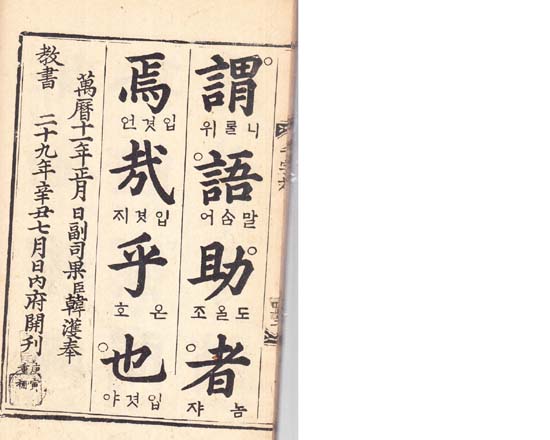 謂
니룰 위
語
말솜 어
助
도올 조
者
놈 쟈
焉
입겻 언
哉
입겻 지
乎
온 호
也
입겻 야
萬曆十一年正月 日副司果臣韓濩奉
教書 二十九年辛丑七月日內府開刊
庚寅
重補